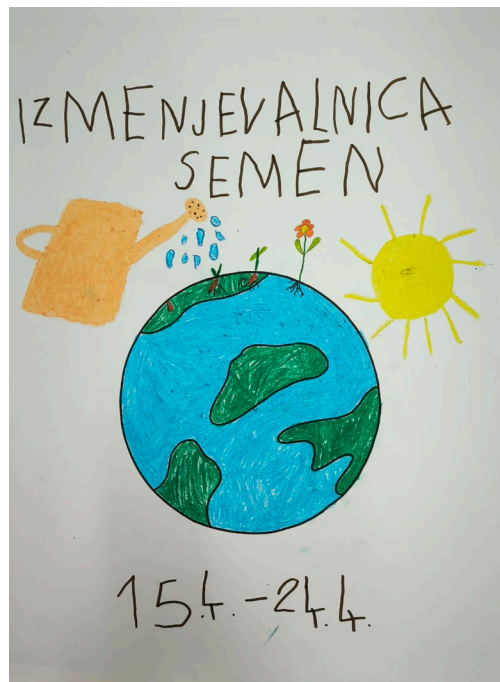 IZMENJEVALNICA
SEMEN
15.4.-24.4.